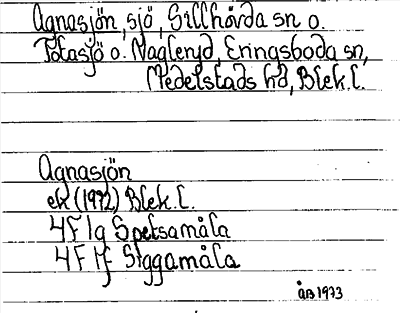 Agnasjön, sjö, Sillhövda sn o.
Totasjö o. Nagleryd, Eringsboda sn,
Medelstads hd, Blek.l.
Agnasjön
ek (1972) Blek.l.
4F 1g Spetsamåla
4F 1f Siggamåla
ÅB 1973